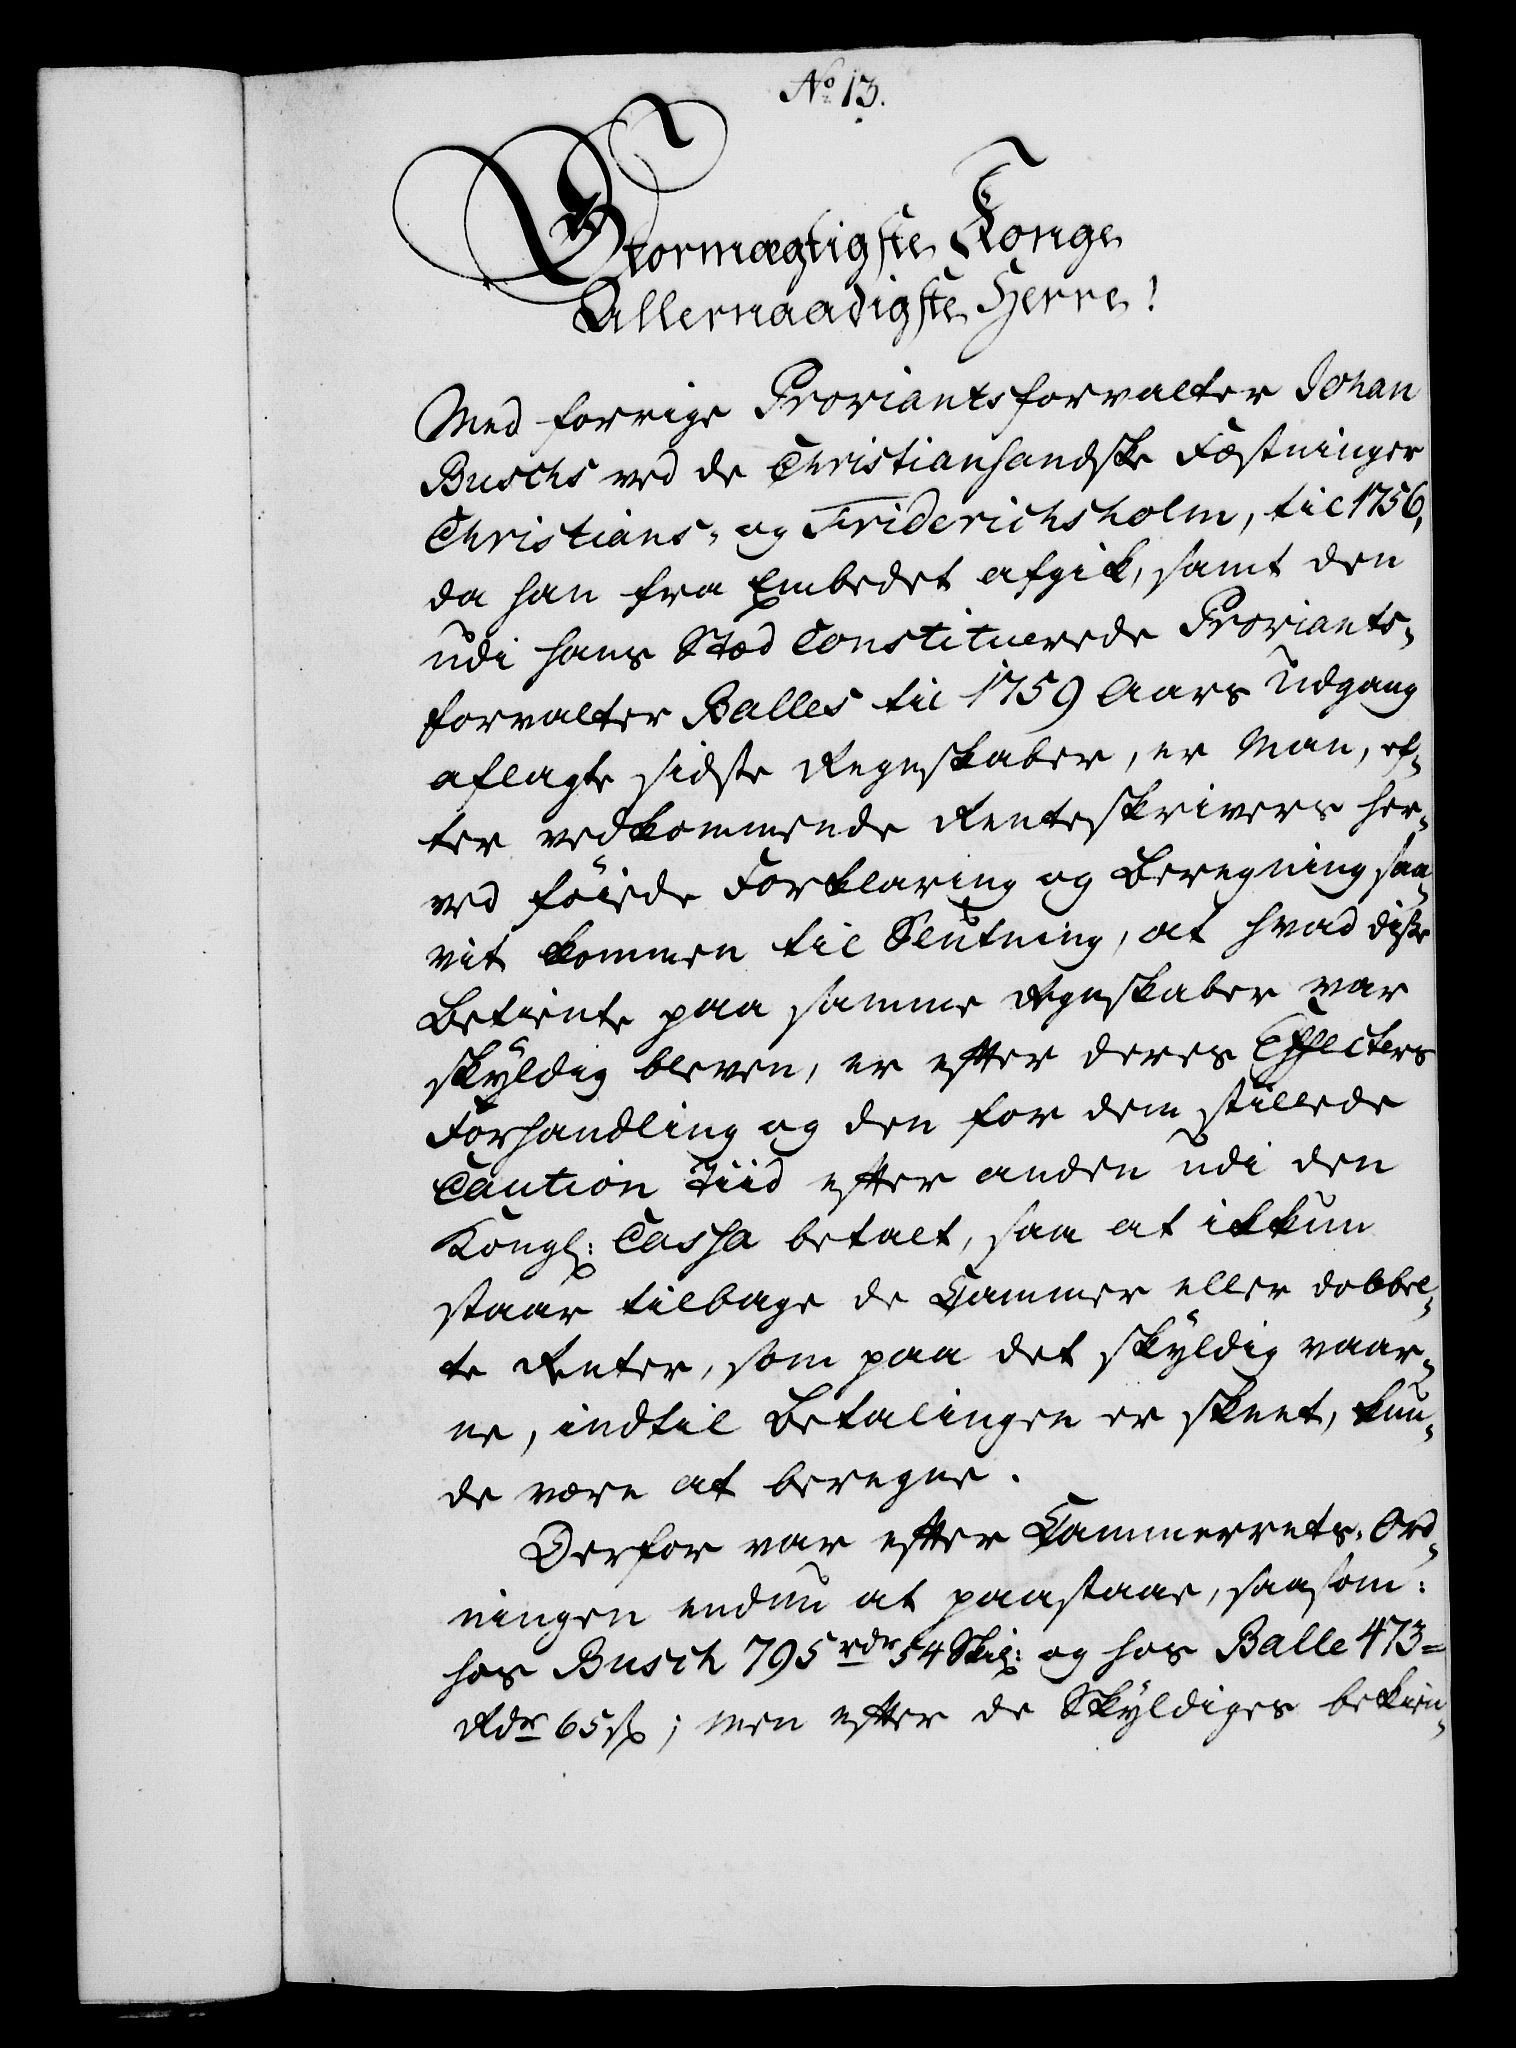 No 13.
Stormægtigste Konge
Allernaadigste Herre!
Med forrige Proviantsforvalter Johan
Buschs ved de Christiansandske Fæstninger
Christians- og Friderichsholm, til 1756,
da han fra Embedet afgik, samt den
udi hans Stæd Constituerede Proviants-
forvalter Balles til 1759 Aars Udgang
aflagte sidste Regnskaber, er Man, ef-
ter vedkommende Renteskrivers her-
ved föiede Forklaring og Beregning saa-
vit kommen til Slutning, at hvad disse
Betiente paa samme Regnskaber var
skÿldig bleven, er efter deres Effecters
Forhandling og den for dem stillede
Caution Tiid efter anden udi den
Kongl: Cassa betalt, saa at ikkun
staar tilbage de Cammer eller dobbel-
te Renter, som paa det skÿldig vaar-
ne, indtil Betalingen er skeet, kun-
de være at beregne.
Derfor var efter Cammerrets-Ord-
ningen endnu at paastaae, saasom:
hos Busch 795 rdr 54 Skil: og hos Balle 473=
Rdr 65 s; men efter de Skÿldiges bekien-